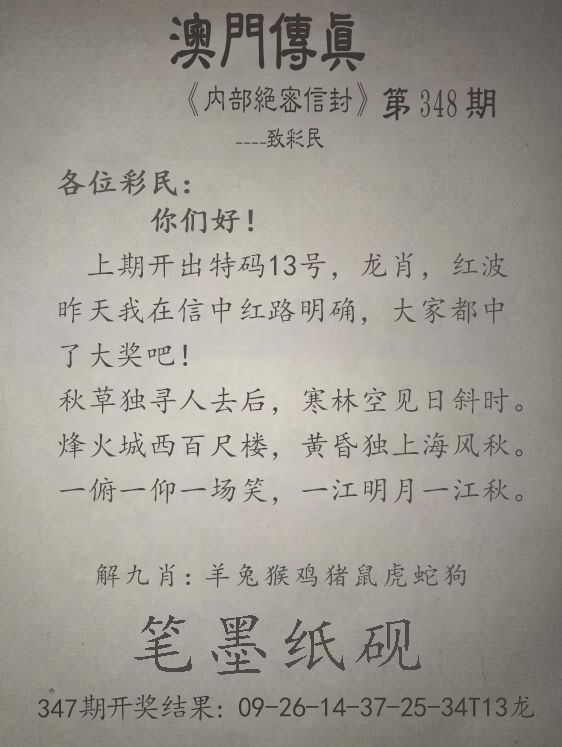 澳門傳眞
《内部絕密信封》第348期
----致彩民
各位彩民：
你们好！
上期开出特码13号，龙肖，红波
昨天我在信中红路明确，大家都中
了大奖吧！
秋草独寻人去后，寒林空见日斜时。
烽火城西百尺楼，黄昏独上海风秋。
一俯一仰一场笑，一江明月一江秋。
解九肖：羊兔猴鸡猪鼠虎蛇狗
笔墨纸砚
347期开奖结果：09-26-14-37-25-34T13龙